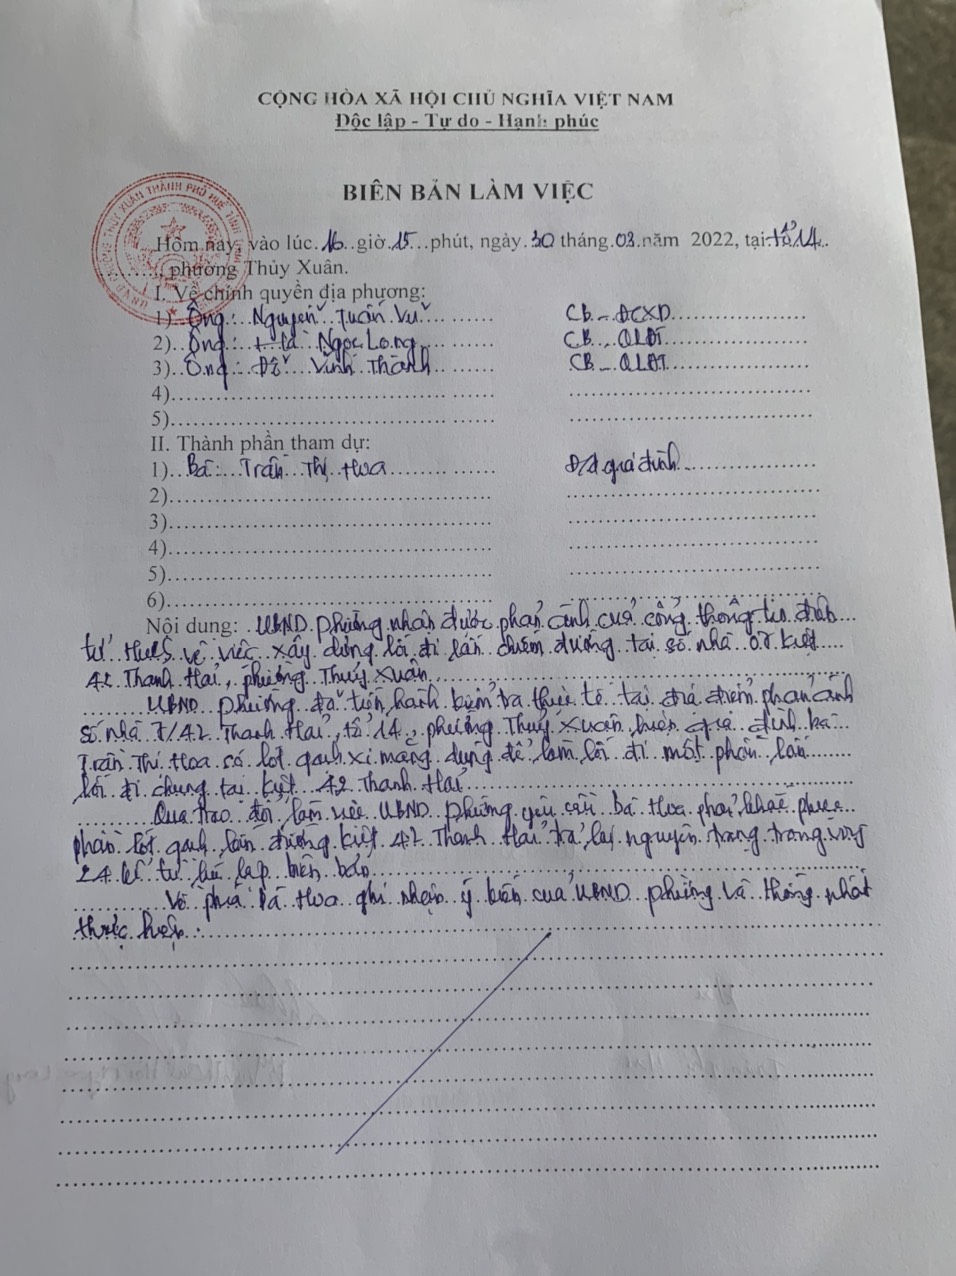 CỘNG HÒA XÃ HỘI CHỦ NGHĨA VIỆT NAM
Độc lập - Tự do - Hạnh phúc
BIÊN BẢN LÀM VIỆC
Hôm nay, vào lúc.16..giờ.15...phút, ngày.30 tháng.03.năm 2022, tại tổ 14..
........, phường Thủy Xuân.
I. Về chính quyền địa phương:
1)..Ông: Nguyễn Tuấn Vũ............ CB - ĐCXD....................
2)..Ông: Ngọc Long............ CB - QLĐT....................
3)..Ông: Đỗ Vĩnh Thành............ CB - QLĐT....................
4)..................................................
5)..................................................
II. Thành phần tham dự:
1)..Bà: Trần Thị Hoa............ Đ/d gia đình....................
2)..................................................
3)..................................................
4)..................................................
5)..................................................
6)..................................................
Nội dung: UBND phường nhận được phản ánh của cổng thông tin điện
tử HueS về việc xây dựng lối đi lấn chiếm đường tại số nhà 07 kiệt
42 Thanh Hải, phường Thủy Xuân.
UBND phường đã tiến hành kiểm tra thực tế tại địa điểm phản ánh
số nhà 7/42 Thanh Hải, tổ 14, phường Thủy Xuân, hiện gia đình bà
Trần Thị Hoa có lót gạch xi măng dựng để làm lối đi một phần lấn
lối đi chung tại kiệt 42 Thanh Hải
Qua trao đổi, làm việc UBND phường yêu cầu bà Hoa phải khắc phục
phần lót gạch lấn đường kiệt 42 Thanh Hải trả lại nguyên trạng trong vòng
24 kể từ lúc lập biên bản.
Về phía bà Hoa ghi nhận ý kiến của UBND phường và thống nhất
thực hiện.